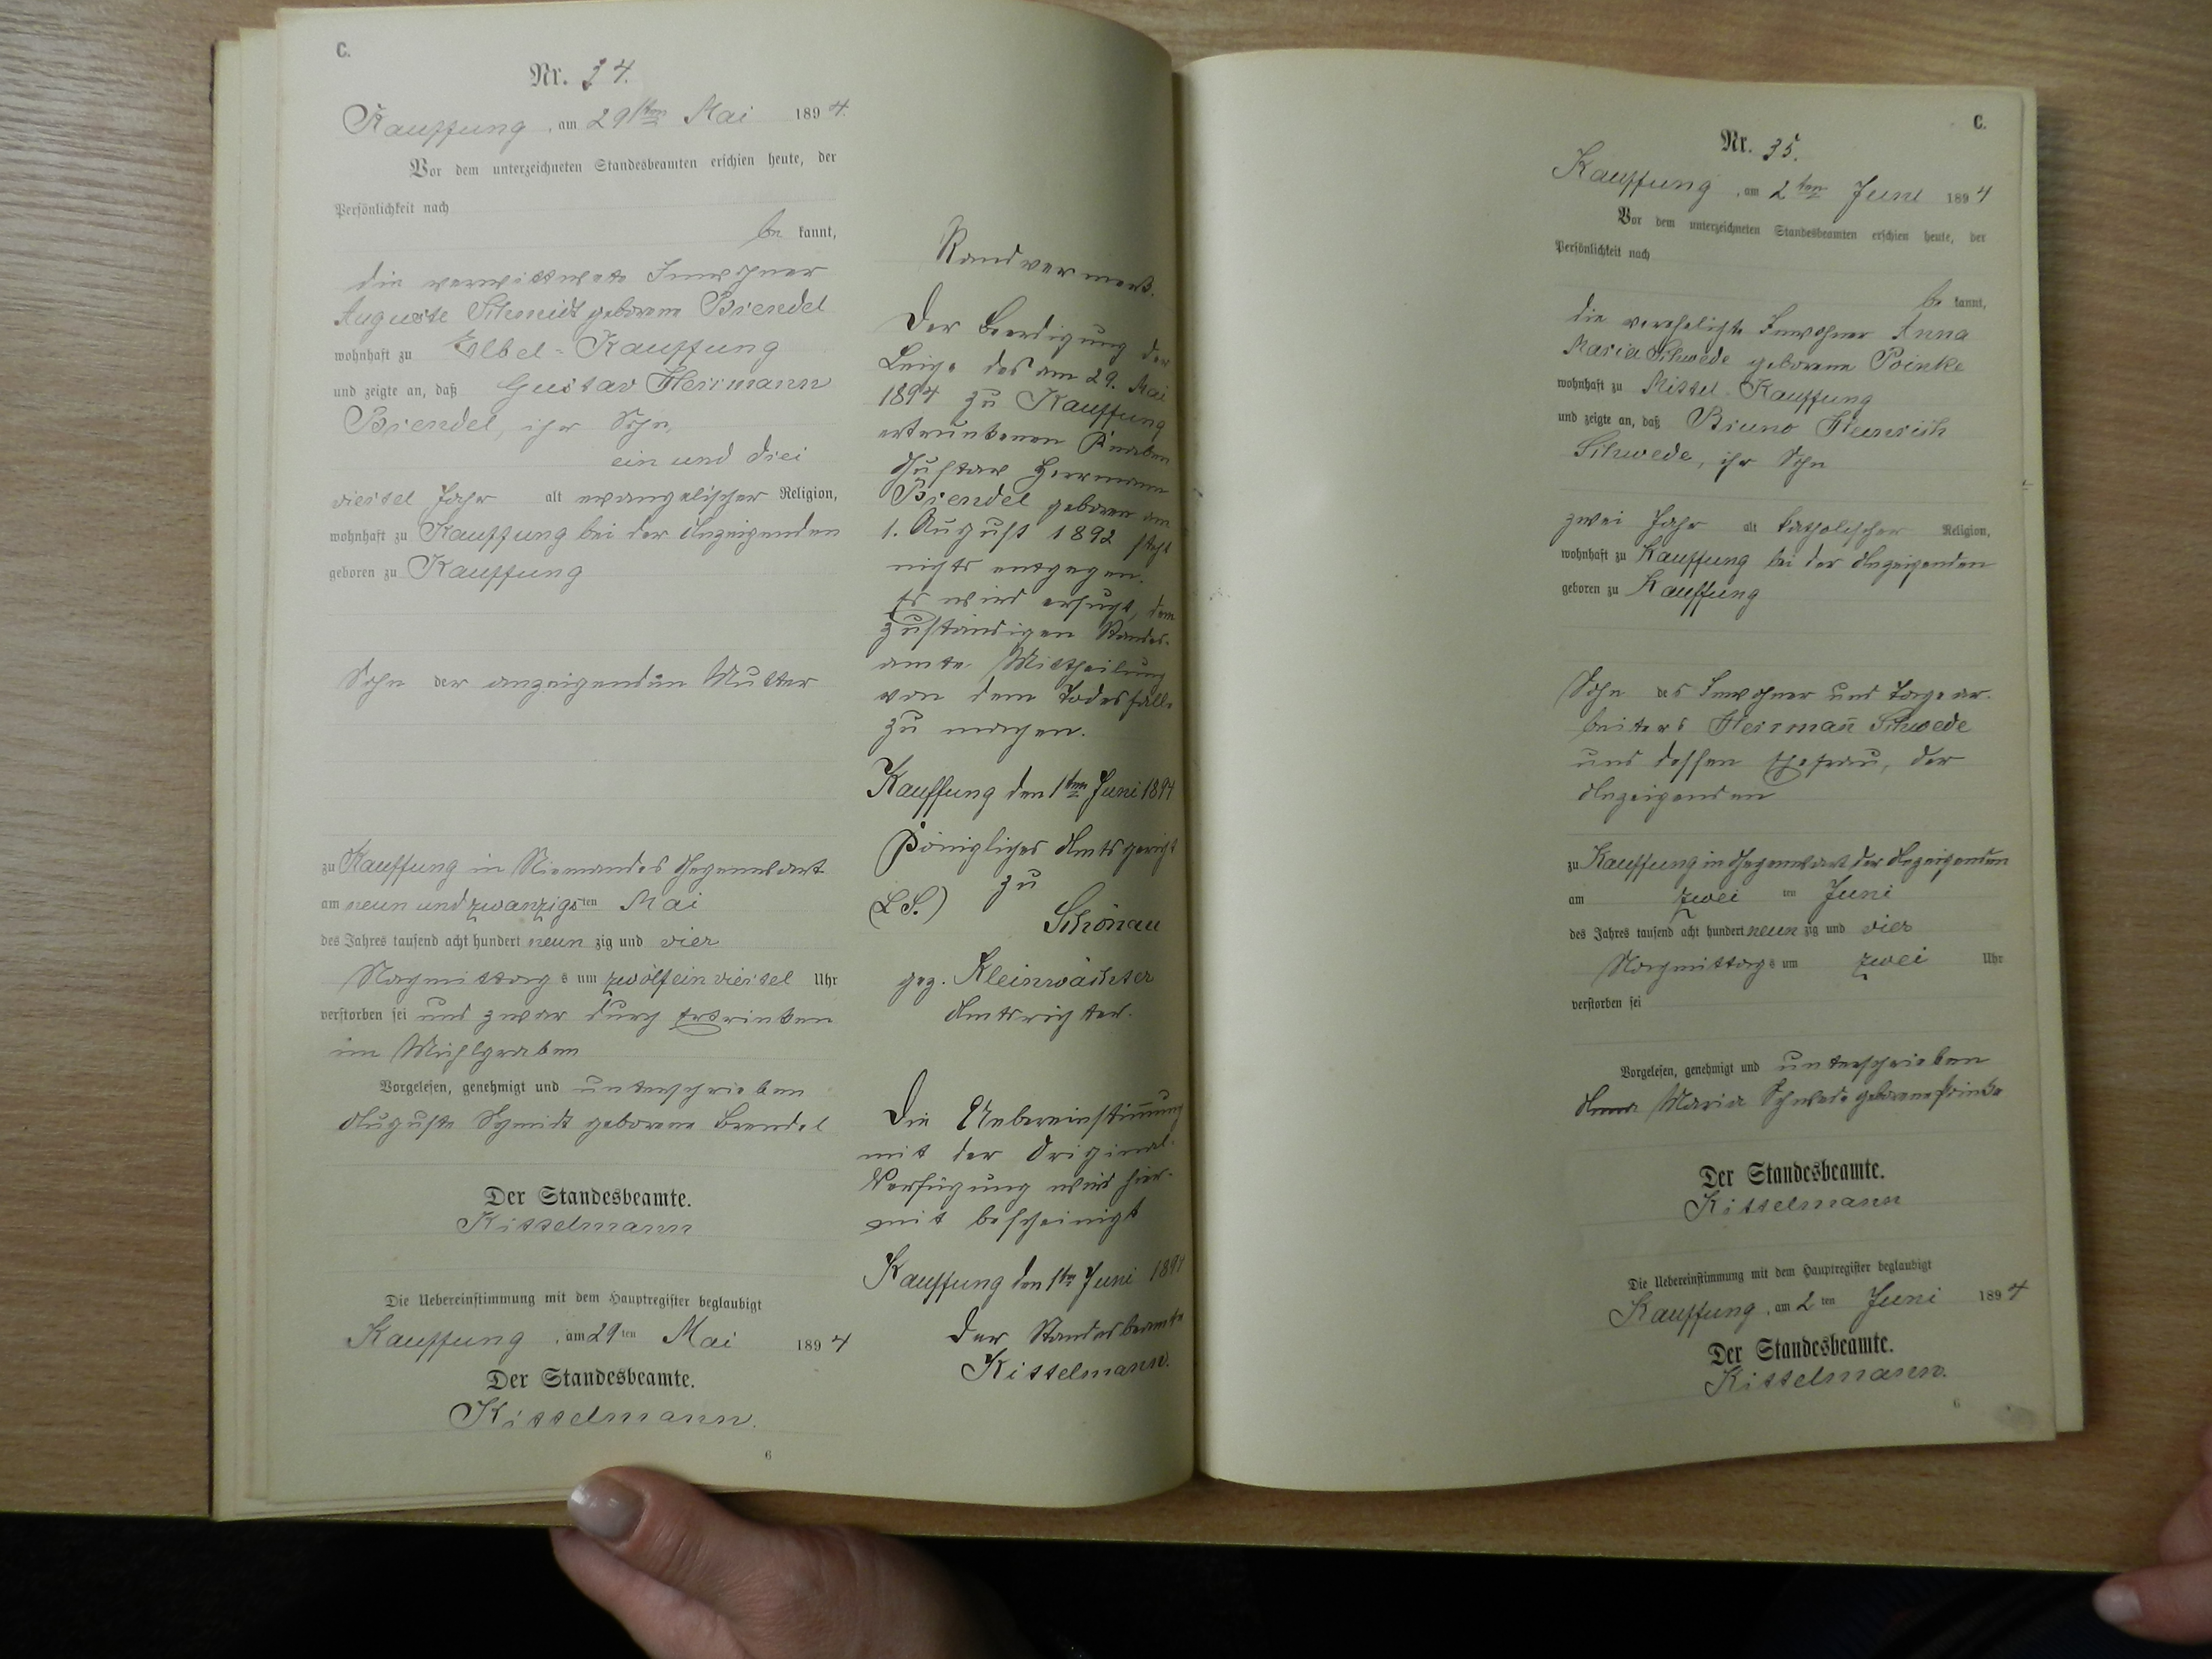 C.
Nr. 34.
Kauffung, am 29ten Mai 1894.
Vor dem unterzeichneten Standesbeamten erschien heute, der
Persönlichkeit nach
be kannt,
die verwittwete Inwohner
Auguste Schmidt geborene Brendel
wohnhaft zu Elbel-Kauffung
und zeigte an, daß Gustav Herrmann
Brendel, ihr Sohn,
ein und drei
viertel Jahr alt evangelischer Religion,
wohnhaft zu Kauffung bei der Anzeigenden
geboren zu Kauffung
Sohn der anzeigenden Mutter
zu Kauffung in Niemandes Gegenwart
am neun und zwanzigsten Mai
des Jahres tausend acht hundert neun zig und vier
Nachmittags um zwölfeinviertel Uhr
verstorben sei und zwar durch Ertrinken
im Mühlgraben
Vorgelesen, genehmigt und unterschrieben
Auguste Schmidt geborene Brendel
Der Standesbeamte.
Kittelmann
Die Uebereinstimmung mit dem Hauptregister beglaubigt
Kauffung, am 29ten Mai 1894
Der Standesbeamte.
Kittelmann.
6
Randvermerk.
Der Beerdigung der
Leiche des am 29. Mai
1894 zu Kauffung
ertrunkenen Knaben
Gustav Herrmann
Brendel geboren am
1. August 1892 steht
nichts entgegen.
Es wird ersucht, dem
zuständigen Standes-
amte Mittheilung
von dem Todesfalle
zu machen.
Kauffung den 1ten Juni 1894
Königliches Amtsgericht
zu
(L.S.) Schönau
gez. Kleinwächter
Amtsrichter.
Die Uebereinstimmung
mit der Original-
Verfügung wird hier-
mit bescheinigt
Kauffung den 1ten Juni 1894
Der Standesbeamte
Kittelmann.
C.
Nr. 35.
Kauffung, am 2ten Juni 1894
Vor dem unterzeichneten Standesbeamten erschien heute, der
Persönlichkeit nach
be kannt,
die verehelichte Inwohner Anna
Maria Schwede geborene Poinke
wohnhaft zu Mittel-Kauffung
und zeigte an, daß Bruno Heinrich
Schwede, ihr Sohn
zwei Jahr alt katholischer Religion,
wohnhaft zu Kauffung bei der Anzeigenden
geboren zu Kauffung
Sohn des Inwohner und Tagear-
beiters Herrmañ Schwede
und dessen Ehefrau, der
Anzeigenden
zu Kauffung in Gegenwart der Anzeigenden
am zwei ten Juni
des Jahres tausend acht hundert neun zig und vier
Nachmittags um zwei Uhr
verstorben sei
Vorgelesen, genehmigt und unterschrieben
Anna Maria Schwede geborene
Der Standesbeamte.
Kittelmann
Die Uebereinstimmung mit dem Hauptregister beglaubigt
Kauffung, am 2ten Juni 1894
Der Standesbeamte.
Kittelmann.
6